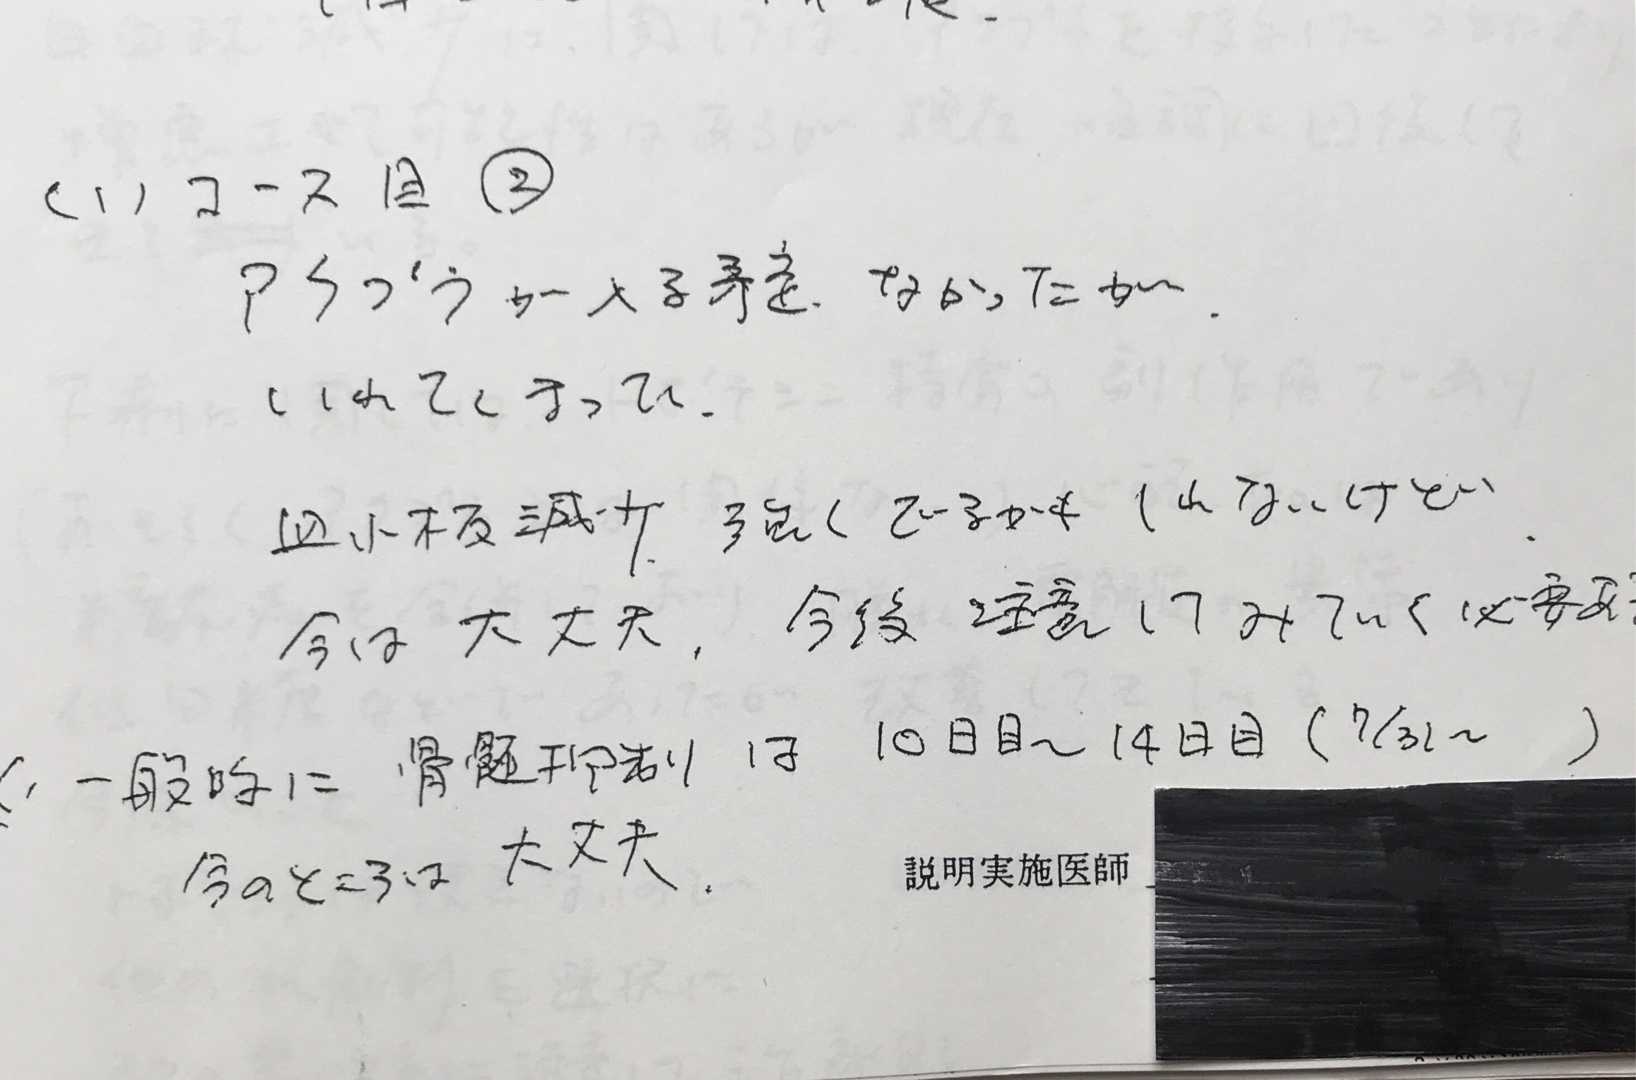 (1) コース目 ②
アクプラが入る予定、なかったが、
いれてしまって、
血小板減少、強くでるかもしれないけど、
今は大丈夫、今後注意してみていく必要ある
一般的に骨髄抑制は10日目〜14日目(7/31〜 )
今のところは大丈夫、
説明実施医師